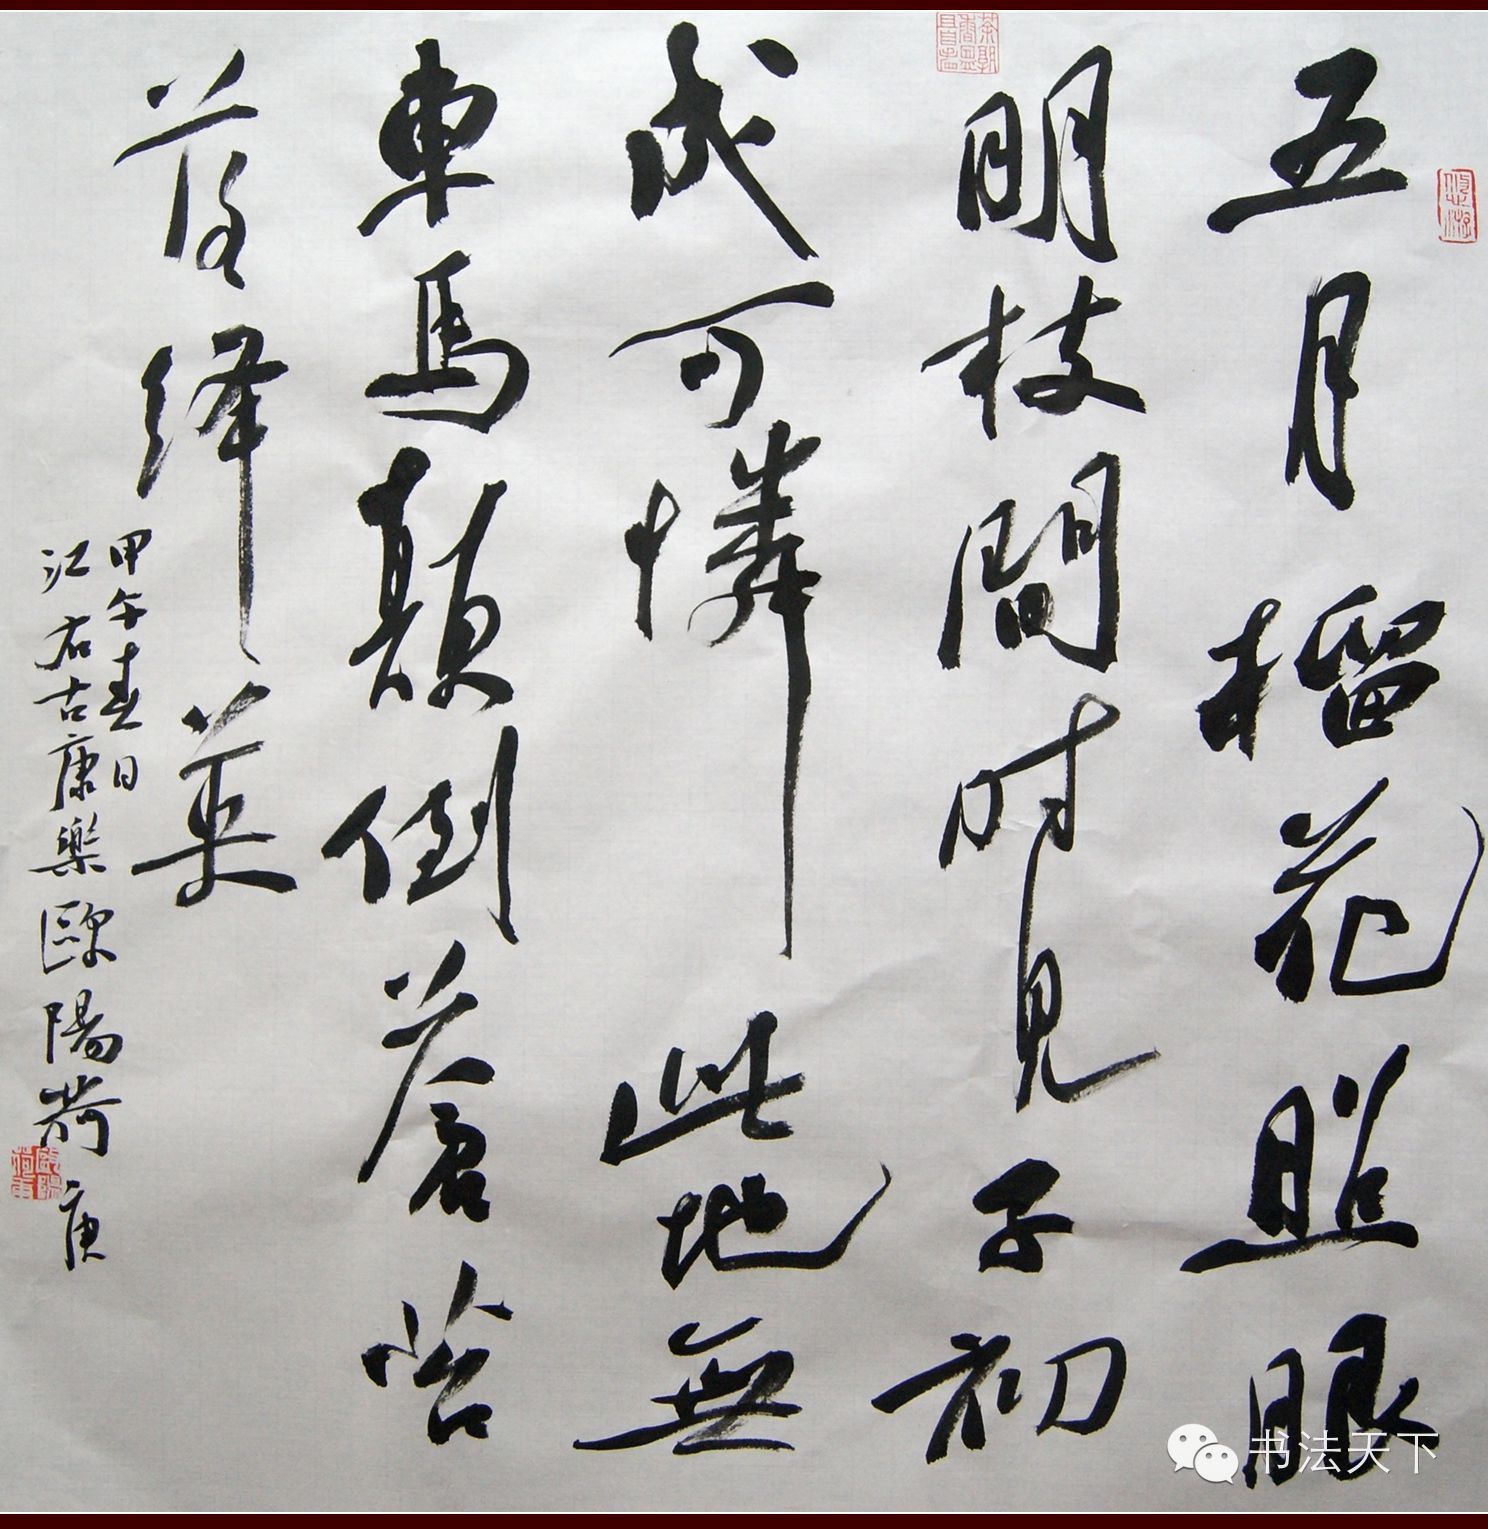 五月榴花照眼
明枝間时見子初
成可憐此地無
車馬顛倒蒼苔
落絳英
甲午春日
江右古康樂歐陽荷庚
书法天下